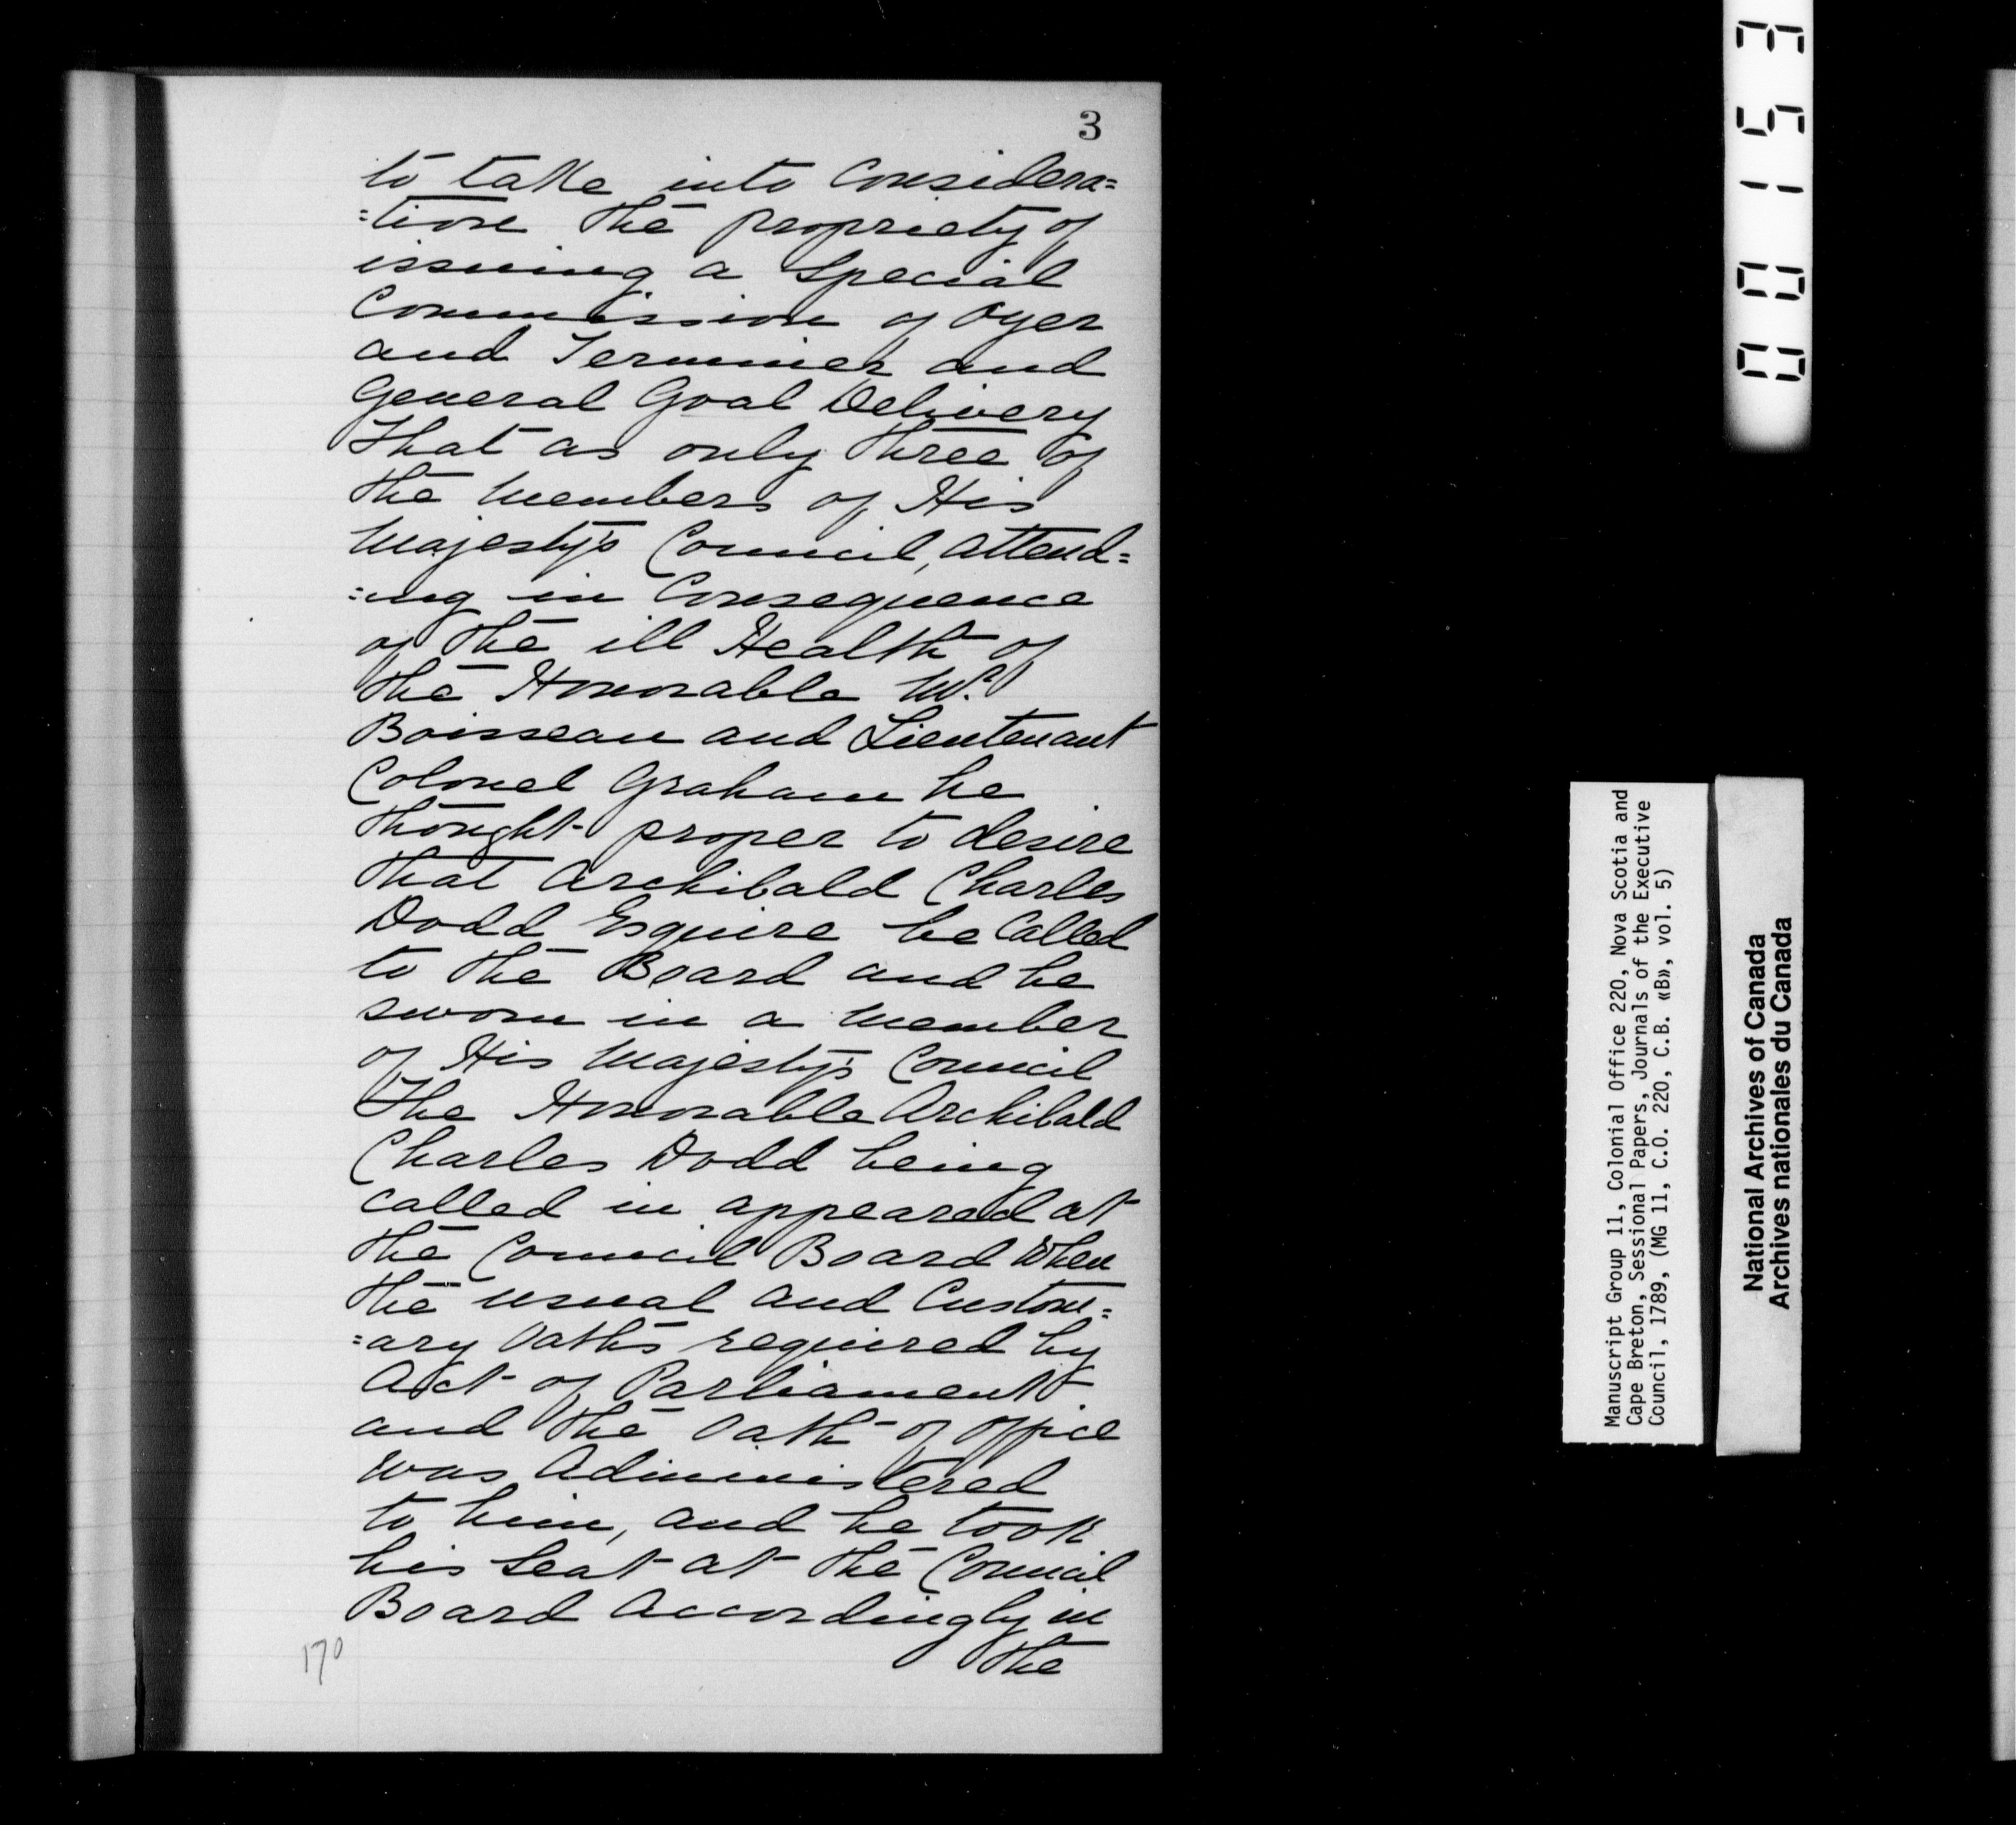 3
to take into Considera=
=tion the propriety of
issuing a Special
Commission of Oyer
and Terminer and
General Goal Delivery
That as only three of
the Members of His
Majesty's Council, attend=
=ing in Consequence
of the ill Health of
the Honorable Mr.
Boisseau and Lieutenant
Colonel Graham he
thought proper to desire
that Archibald Charles
Dodd Esquire be Called
to the Board and be
sworn in a Member
of His Majesty's Council
The Honorable Archibald
Charles Dodd being
called in appeared at
the Council Board When
the usual and Custom=
=ary Oaths required by
Act of Parliament
and the Oath of Office
was Administered
to him, and he took
his Seat at the Council
Board Accordingly in
the
170
00153
Manuscript Group 11, Colonial Office 220, Nova Scotia and
Cape Breton, Sessional Papers, Journals of the Executive
Council, 1789, (MG 11, C.O. 220, C.B. «B», vol. 5)
National Archives of Canada
Archives nationales du Canada